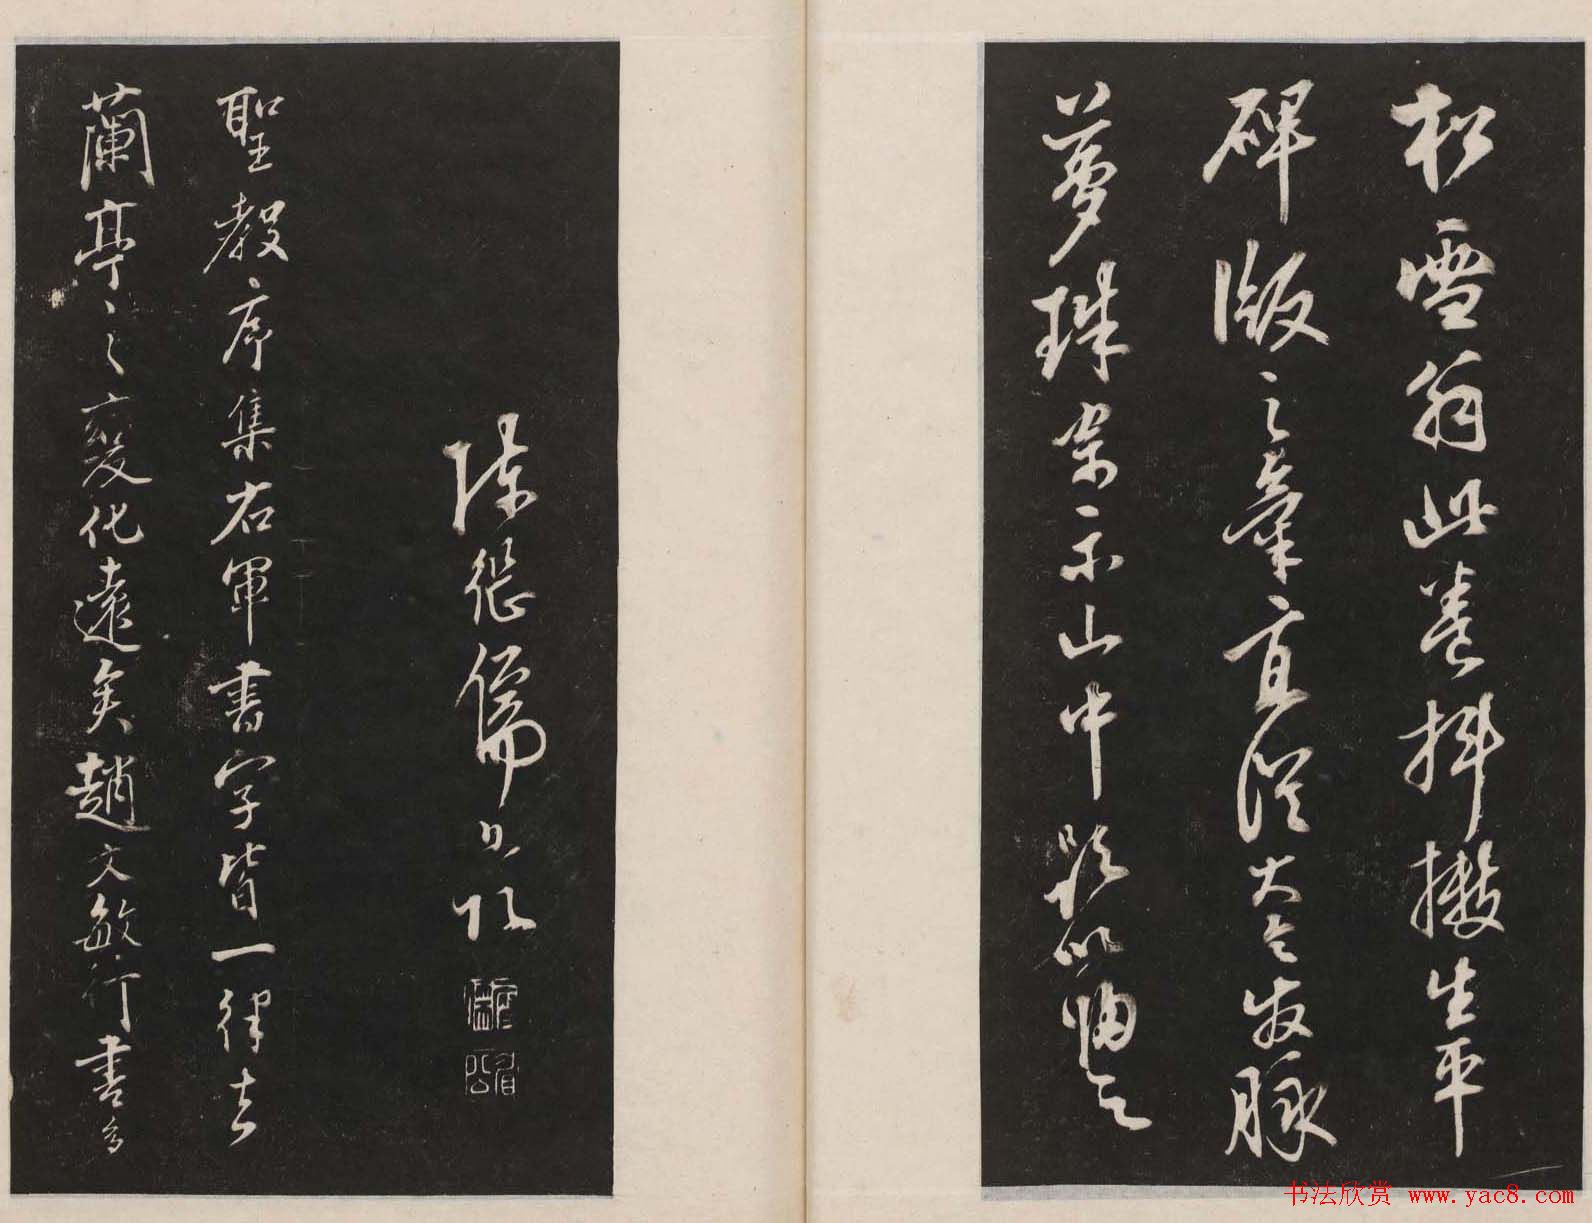 松雪翁此卷抖擻生平
碑版之氣直從大令發脉
夢珠示山中題以歸之
陳繼儒
眉公
聖教序集右軍書字皆一律去
蘭亭之變化遠矣趙文敏行書多
书法欣赏 www.yac8.com